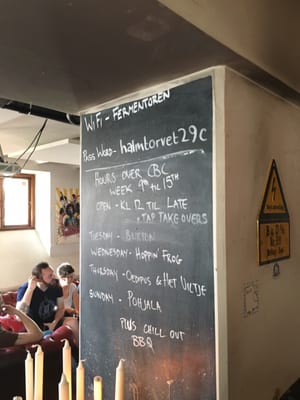 WiFi - FERMENTOREN
PASS WORD - halmtorvet29c
HOURS OVER CBC
WEEK 9th TIL 15TH
OPEN - KL 12 TIL LATE
+ TAP TAKE OVERS
TUESDAY - BUXTON
WEDNESDAY - HOPPIN' FROG
THURSDAY - OEDIPUS & HET UILTJE
SUNDAY - POHJALA
PLUS CHILL OUT
BBQ